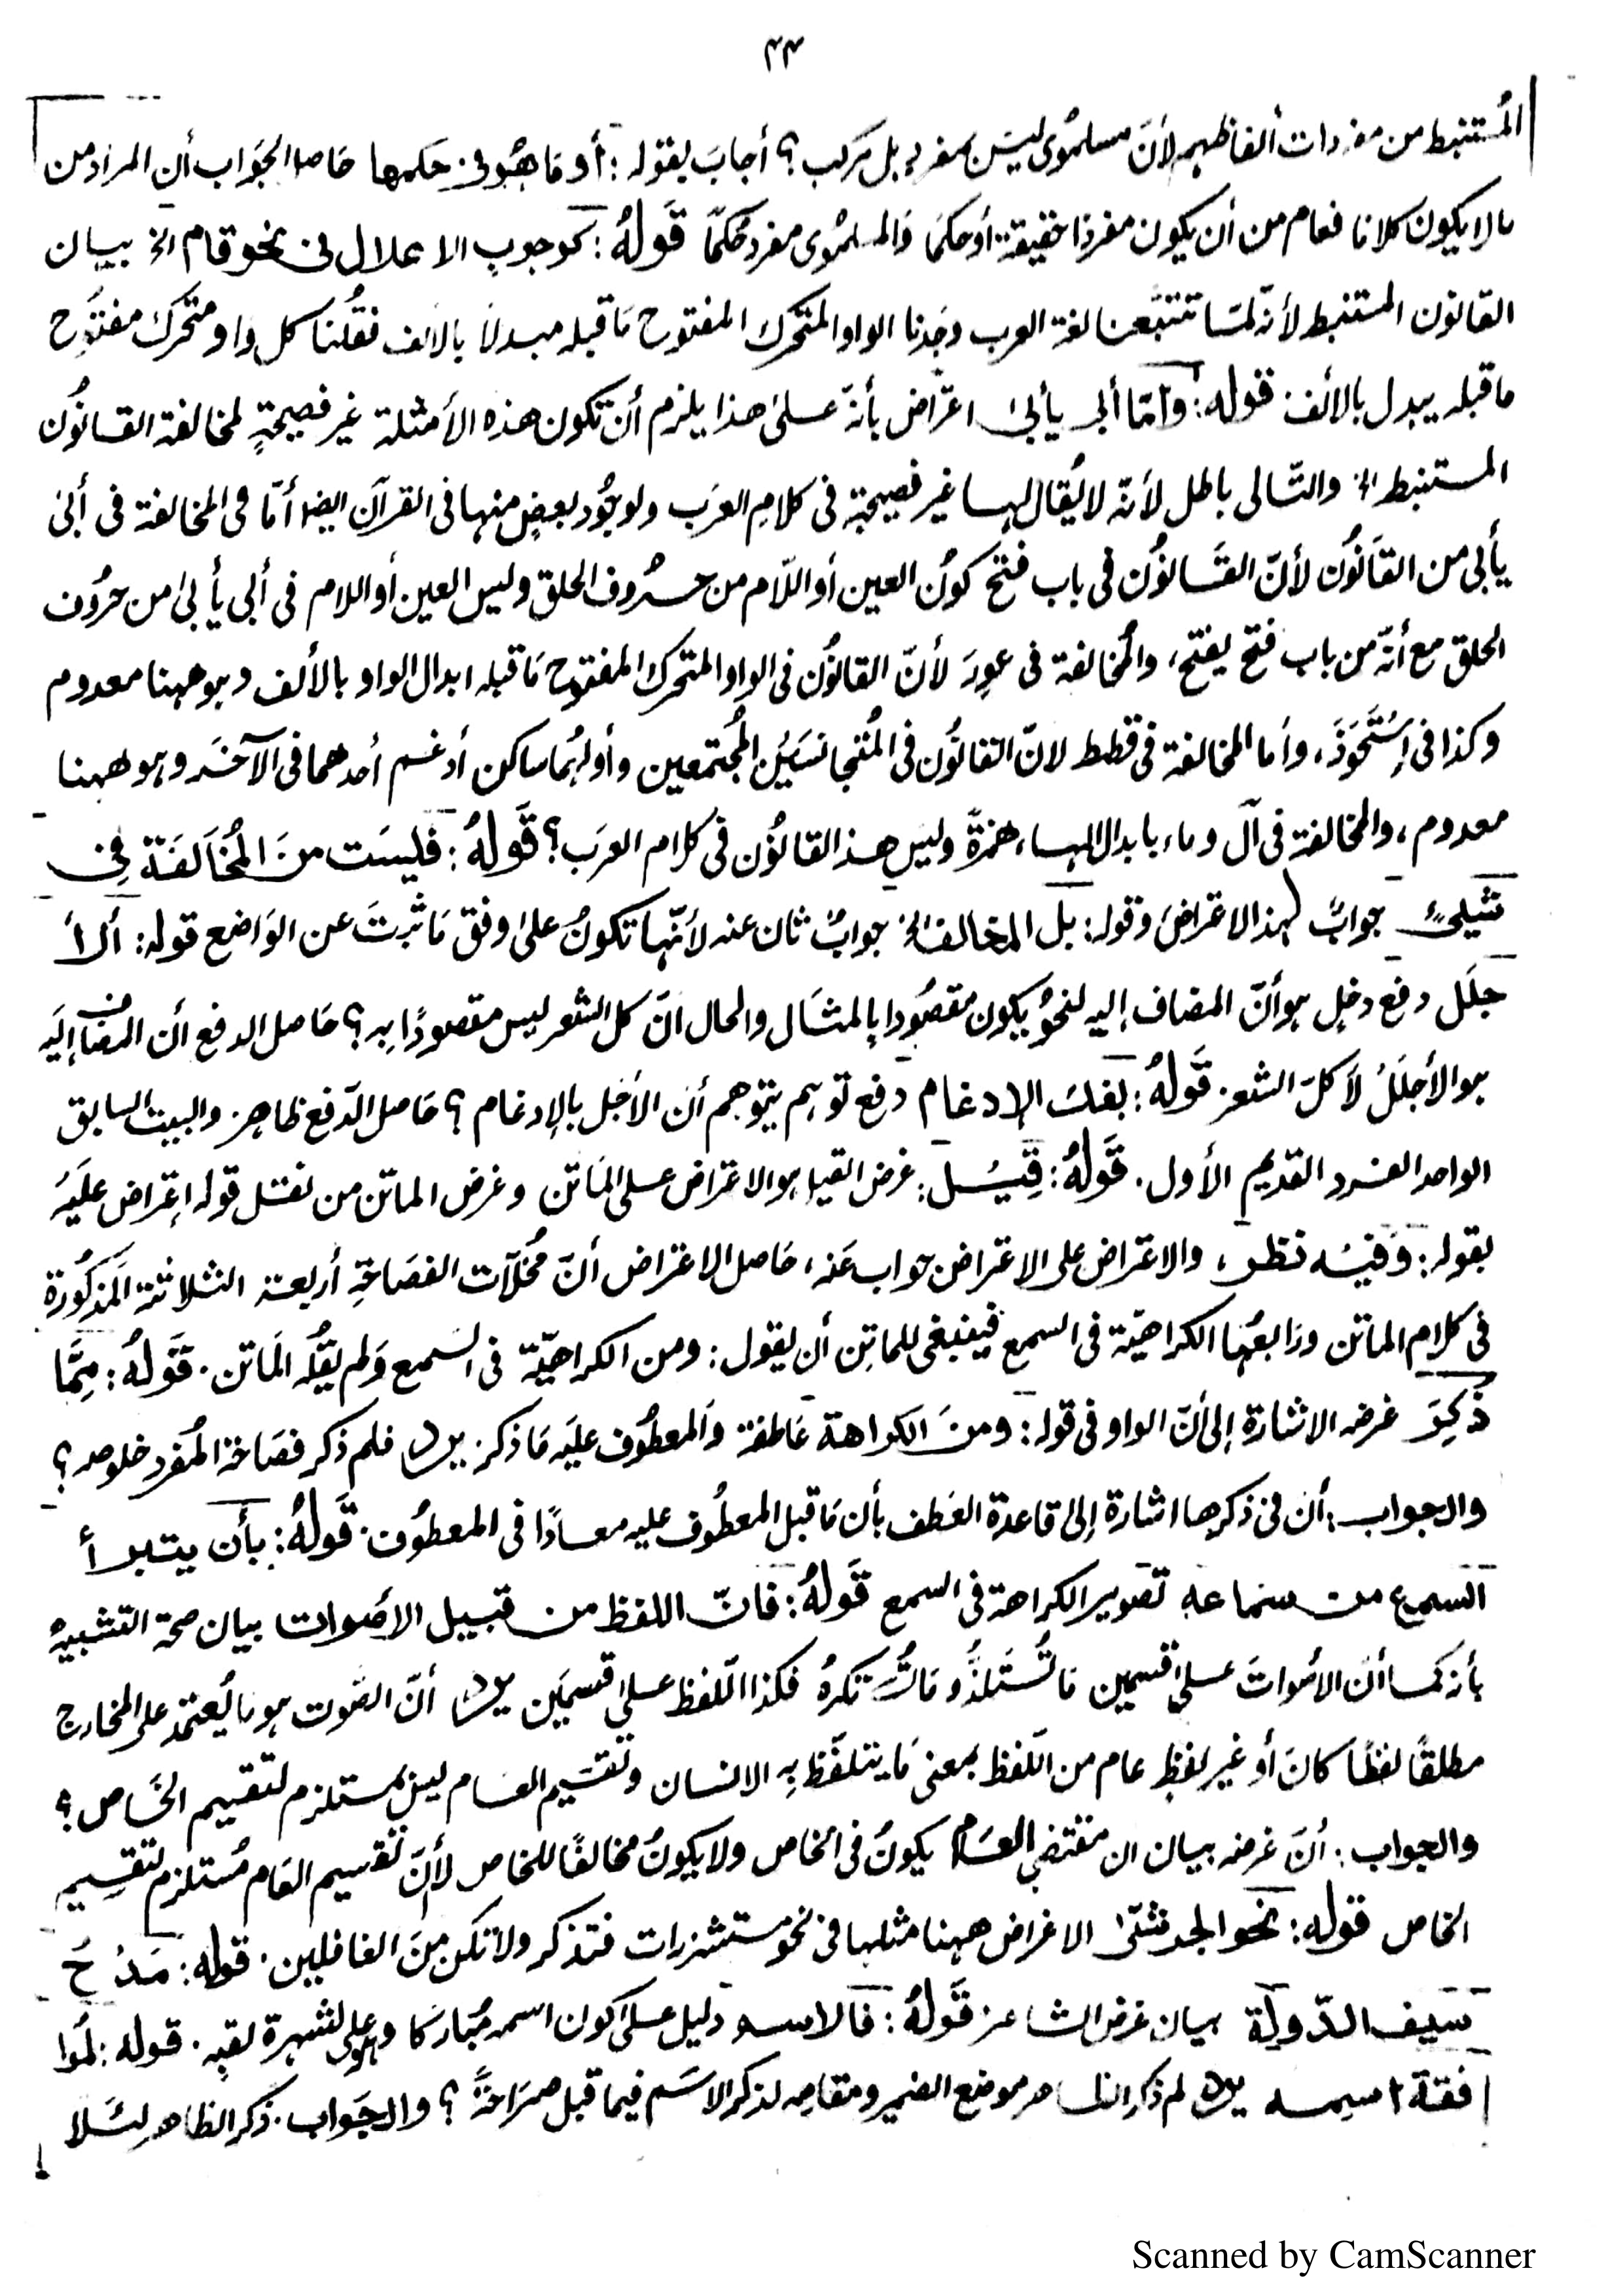 ٤٣
المُستنبط من مفردات ألفاظهم لأنّ مسلمُوى ليسَ بمفرد بل مركب؟ أجابَ بقوله: أو مَا هُو فى حكمها حَاصل الجَواب أن المراد من
مالا يكون كلاما فعام من أن يكون مفردًا حقيقة أو حكمَا وَالمسلمُوى مفرد حُكمًا قَولهُ: كوجوبِ الاعلال فى نحو قام الخ بيان
القانون المستنبط لأنّه لمَّا تتبّعنا لغة العرب وجَدنا الواو المتحَرك المفتوح مَا قبله مبدلاً بالألف فقُلنا كل واو متحَرك مفتوُح
ما قبله يبدل بالألف قوله: وأمّا أبى يأبىٰ اعتراض بأنّه عَلىٰ هذا يلزم أن تكون هذه الأمثلة غير فصيحةٍ لمخالفة القَانوُن
المستنبط الخ والتّالى باطل لأنّه لا يُقال لها غير فصيحة فى كلامِ العرَب ولوجُود بعضٍ منها فى القرآن ايضا أمّا فى المخالفة فى أبىٰ
يأبى من القَانوُن لأنّ القَانوُن فى باب فتح كونُ العين أو اللّام من حرُوف الحلق وليس العين أو اللام فى أبى يأبىٰ من حرُوف
الحلق مع أنّه من باب فتح يفتح، والمُخالفة فى عوِرَ لأنّ القانوُن فى الواو المتحرك المفتوح مَا قبله ابدال الواو بالألف وهو ههنا معدوم
وكذا فى إستَحوَذَ، وأما المخالفة فى قطط لانّ القانوُن فى المُتجانسَيْن المُجتمعين وأولهُما ساكن أدغم أحدهما فى الآخَر وهو ههنا
معدوم، والمخالفة فى آل وماء بابدال الهاء همزةً وليس هذا القانوُن فى كلام العرَب؟ قَولهُ: فليسَت منَ المُخَالفَة فِى
شَيئٍ جوابٌ لهذا الاعتراض وقوله: بل المخالف الخ جوابٌ ثان عنه لأنّها تكونُ علىٰ وفق مَا ثبتَ عن الوَاضع قوله: ألأ
جلَل دفع دخلٍ هو أنّ المضاف إليه لنحوُ يكون مقصُودا بالمثَال والحال انّ كل الشعر ليس مقصودًا به؟ حَاصل الدفع أن المضاف إليَه
هو الأجلَلُ لاَ كلّ الشعر قَولهُ: بفك الإدغام دفع توهم يتوهم أن الأجَل بالإدغام؟ حَاصل الدّفع ظاهر والبيت السابق
الواحد الفرد القديم الأول. قَولهُ: قِيْل: غرض القيل هو الاعتراض عَلى المَاتن وغرض الماتن من نقل قوله إعتراض عليَه
بقوله: وَفيْه نظر، والاعتراض على الاعتراض جواب عَنه، حَاصل الاعتراض أنّ مخُلّات الفصَاحَةِ أربعة الثلاثة المَذكُورة
فى كلام الماتن ورَابعُها الكراهيّة فى السمع فينبغى للماتِن أن يقول: ومن الكراهيّة فى السَمع وَلم يقُله المَاتن. قَولهُ: مِمَّا
ذُكِرَ غرضه الاشارة إلى أنّ الواو فى قوله: ومنَ الكراهة عَاطفة وَالمعطُوف عليَه مَا ذكر يرد فلم ذكر فصَاحة المُفرد خلوصه؟
والجواب: أن فى ذكرها اشارة إلىٰ قاعدة العَطف بأن مَا قبل المعطُوف عليه معادًا فى المعطوُف. قَولهُ: بأن يتبرأ
السمع من سماعه تصوير الكراهة فى السمع قَولهُ: فانّ اللفظ من قبيل الاصَوات بيان صحة التشبيه
بأنه كما أنّ الأصَواتَ عَلىٰ قسمين مَا تُستَلذُّ ومَا تُستنكرهُ فكذا اللّفظ عَلىٰ قسمَين يرد أنّ الصَوت هو ما يُعتمَد على المخارج
مطلقًا لفظًا كانَ أو غير لفظٍ عام من اللّفظ بمعنى مَا يتلفّظ بِه الانسان وتقسَيم العَام ليس بمستلزم لتقسيم الخَاص؟
والجواب: أنّ غرضه بيان ان مقتضى العَام يكونُ فى الخاص ولا يكونُ مخالفًا للخاص لأنّ تقسيم العَام مُستلزم لتقسِيم
الخاص قوله: نحو الجرشّىٰ الاعراض ههنا مثلها فى نحو مستشزرات فتذكر ولا تكن منَ الغافلين. قوله: مَدْحَ
سيف الدّولة بيان غرض الشاعر قَولهُ: فالاسم دليل عَلىٰ كون اسمه مُبارَكا وهو على لشهرة لقبِه. قوله: لمُوا
فقة اسمه يرد لم ذكر الظاهر موضع الضمير ومقامه لذكر الاسَم فيما قبل صرَاحةً؟ والجَواب. ذكر الظاهر لئلا
Scanned by CamScanner